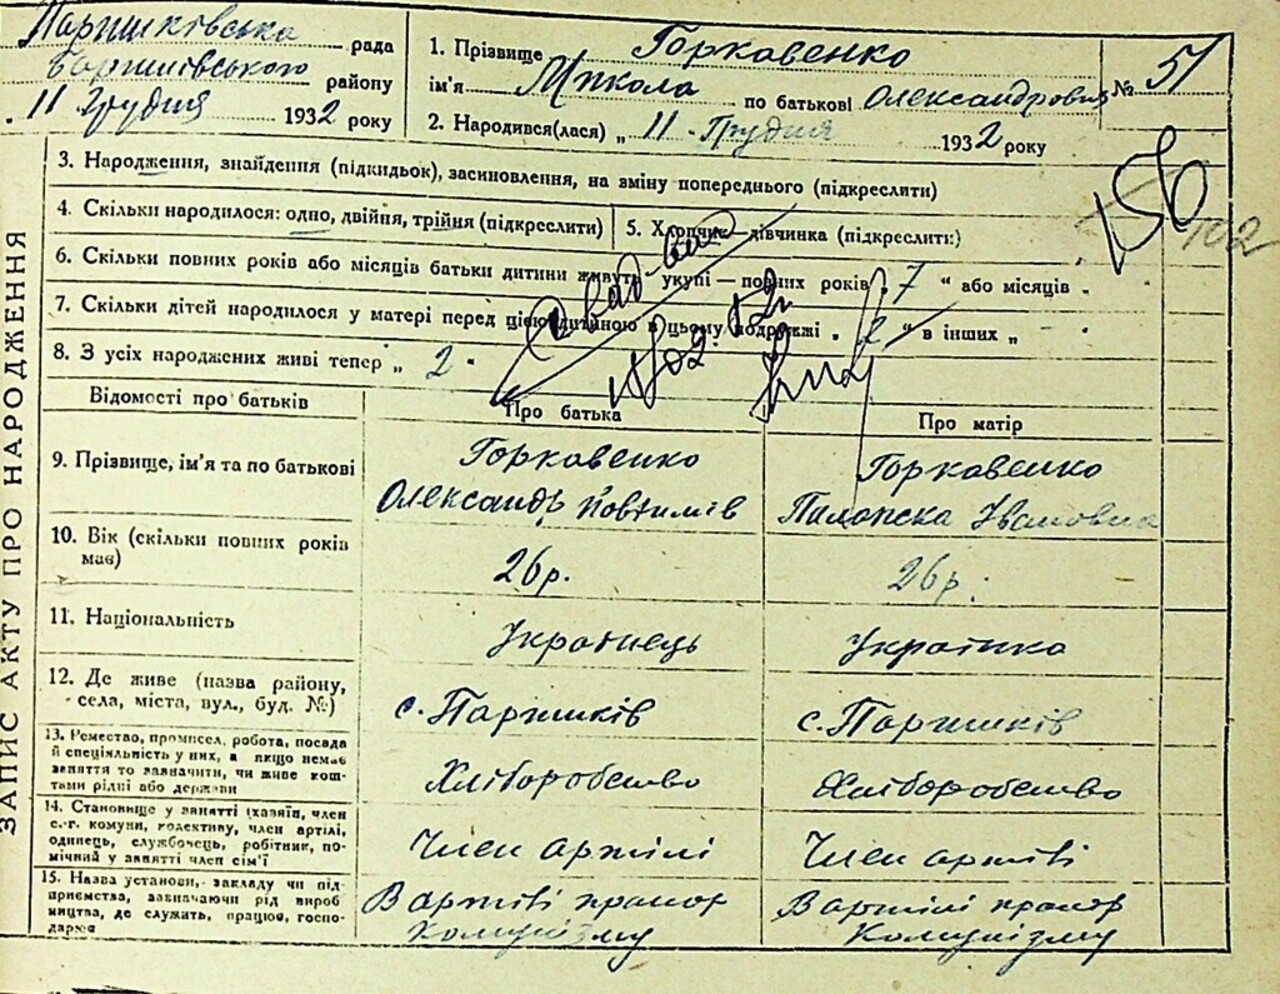 Паришківська рада
Баришівського району
11 Грудня 1932 року
1. Прізвище Горкавенко
ім'я Микола по батькові Олександрович
№ 51
2. Народився(лася) „ 11 - Грудня 1932 року
3. Народження, знайдення (підкидьок), засиновлення, на зміну попереднього (підкреслити)
156
102
4. Скільки народилося: одно, двійня, трійня (підкреслити)
5. Хлопчик—дівчинка (підкреслити)
6. Скільки повних років або місяців батьки дитини живуть укупі — повних років „ 7 “ або місяців „
7. Скільки дітей народилося у матері перед цією дитиною в цьому подружжі „ 2 “ в інших „ -
8. З усіх народжених живі тепер „ 2 “
ЗАПИС АКТУ ПРО НАРОДЖЕННЯ
Відомості про батьків
Про батька
Про матір
9. Прізвище, ім'я та по батькові
Горкавенко
Олександр
Горкавенко
Ивановна
10. Вік (скільки повних років має)
26р.
26р.
11. Національність
Українець
Українка
12. Де живе (назва району,
села, міста, вул., буд. №)
с. Паришків
с. Паришків
13. Ремество, промисел, робота, посада
й спеціяльність у них, а якщо немає
заняття то зазначити, чи живе кош-
тами рідні або держави
Хліборобство
Хліборобство
14. Становище у занятті (хазяїн, член
с.-г. комуни, колективу, член артілі,
одинець, службовець, робітник, по-
мічний у занятті член сім'ї
Член артілі
Член артілі
15. Назва установи, закладу чи під-
приємства, зазначаючи рід вироб
ництва, де служить, працює, госпо-
дарює
В артілі прапор
комунізму
В артілі прапор
Комунізму